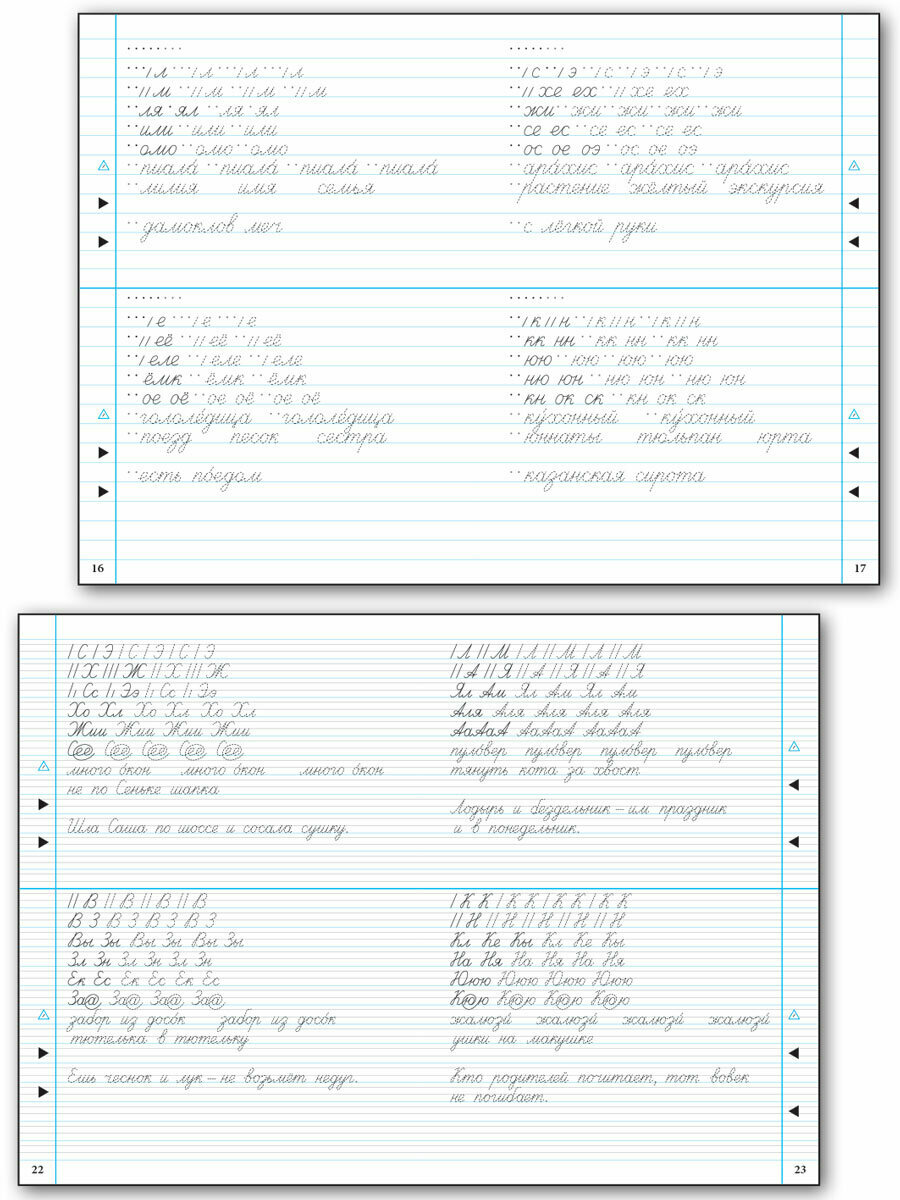 л л л л
м м м м
ля ял ля ял
или или или
омо омо омо
пиала́ пиала́ пиала́ пиала́
лилия имя семья
дамоклов меч
с э с э с э
хе ех хе ех
жи жи жи жи жи
се ес се ес се ес
ос ое оэ ос ое оэ
ара́хис ара́хис ара́хис
растение жёлтый экскурсия
с лёгкой руки
е е е
её её её
еле еле еле
ёмк ёмк ёмк
ое оё ое оё ое оё
гололе́дица гололе́дица
поезд песок сестра
есть по́едом
16
к н к н к н
кк нн кк нн кк нн
юю юю юю юю
ню юн ню юн ню юн
кн ок ск кн ок ск
ку́хонный ку́хонный
юннаты тюльпан юрта
казанская сирота
17
С Э С Э С Э
Х Ж Х Ж
Сс Ээ Сс Ээ
Хо Хл Хо Хл Хо Хл
Жии Жии Жии Жии
Сее Сее Сее Сее Сее
много о́кон много о́кон много о́кон
не по Сеньке шапка
Шла Саша по шоссе и сосала сушку.
Л М Л М Л М
А Я А Я А Я
Ял Ам Ял Ам Ял Ам
Аля Аля Аля Аля Аля
АаАаА АаАаА АаАаА
пуло́вер пуло́вер пуло́вер пуло́вер
тянуть кота за хвост
Лодырь и бездельник – им праздник
и в понедельник.
В В В В
В З В З В З В З
Вы Зы Вы Зы Вы Зы
Зл Зн Зл Зн Зл Зн
Ек Ес Ек Ес Ек Ес
За@ За@ За@ За@
забо́р из досо́к забо́р из досо́к
тютелька в тютельку
Ешь чеснок и лук – не возьмёт недуг.
22
К К К К К К К К
Н Н Н Н Н
Кл Ке Кы Кл Ке Кы
На Ня На Ня На Ня
Ююю Ююю Ююю Ююю
К@ю К@ю К@ю К@ю
жалюзи́ жалюзи́ жалюзи́ жалюзи́
ушки на макушке
Кто родителей почитает, тот вовек
не погибает.
23